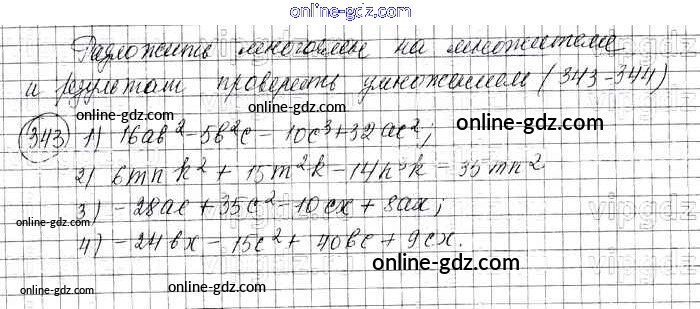 online-gdz.com
Разложить многочлен на множители
и результат проверить умножением (343-344)
online-gdz.com
(343) 1) 16ab² - 5b²c - 10c³ + 32ac²;
online-gdz.com
2) 6mnk² + 15m²k - 14n³k - 35mn²
3) - 28ac + 35c² - 10cx + 8ax;
online-gdz.com
4) - 24bx - 15c² + 40bc + 9cx.
online-gdz.com
online-gdz.com